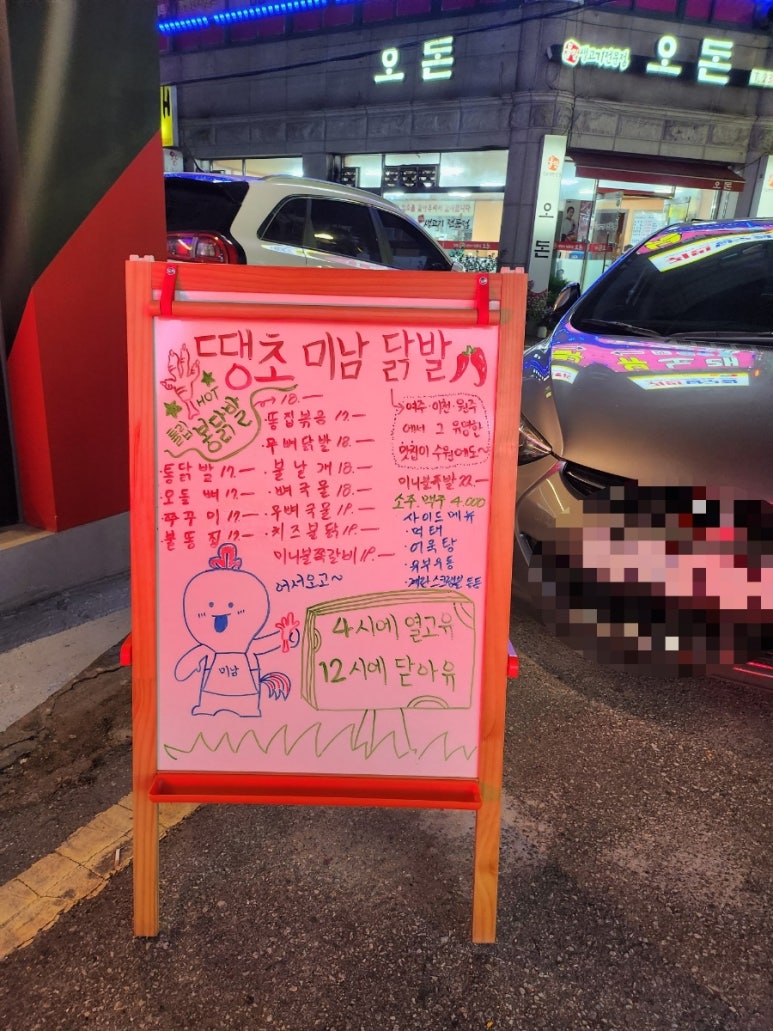 오돈
생고기전문점 오돈
오돈
생고기 전문점
땡초 미남 닭발
HOT
특급
봉닭발
18.-
똥집볶음 17.-
무뼈닭발 18.-
통닭발 17.-
불날개 18.-
오돌뼈 17.-
뼈국물 18.-
쭈꾸미 19.-
무뼈국물 19.-
불똥집 17.-
치즈불닭 19.-
미니불쪽갈비 19.-
여주·이천·원주
에서 그 유명한
맛집이 수원에도~
미니불족발 22.-
소주 맥주 4.000
사이드메뉴
·먹태
·어묵탕
·유부우동
·계란스크램블 등등
어서오고~
미남
4시에 열고유
12시에 닫아유